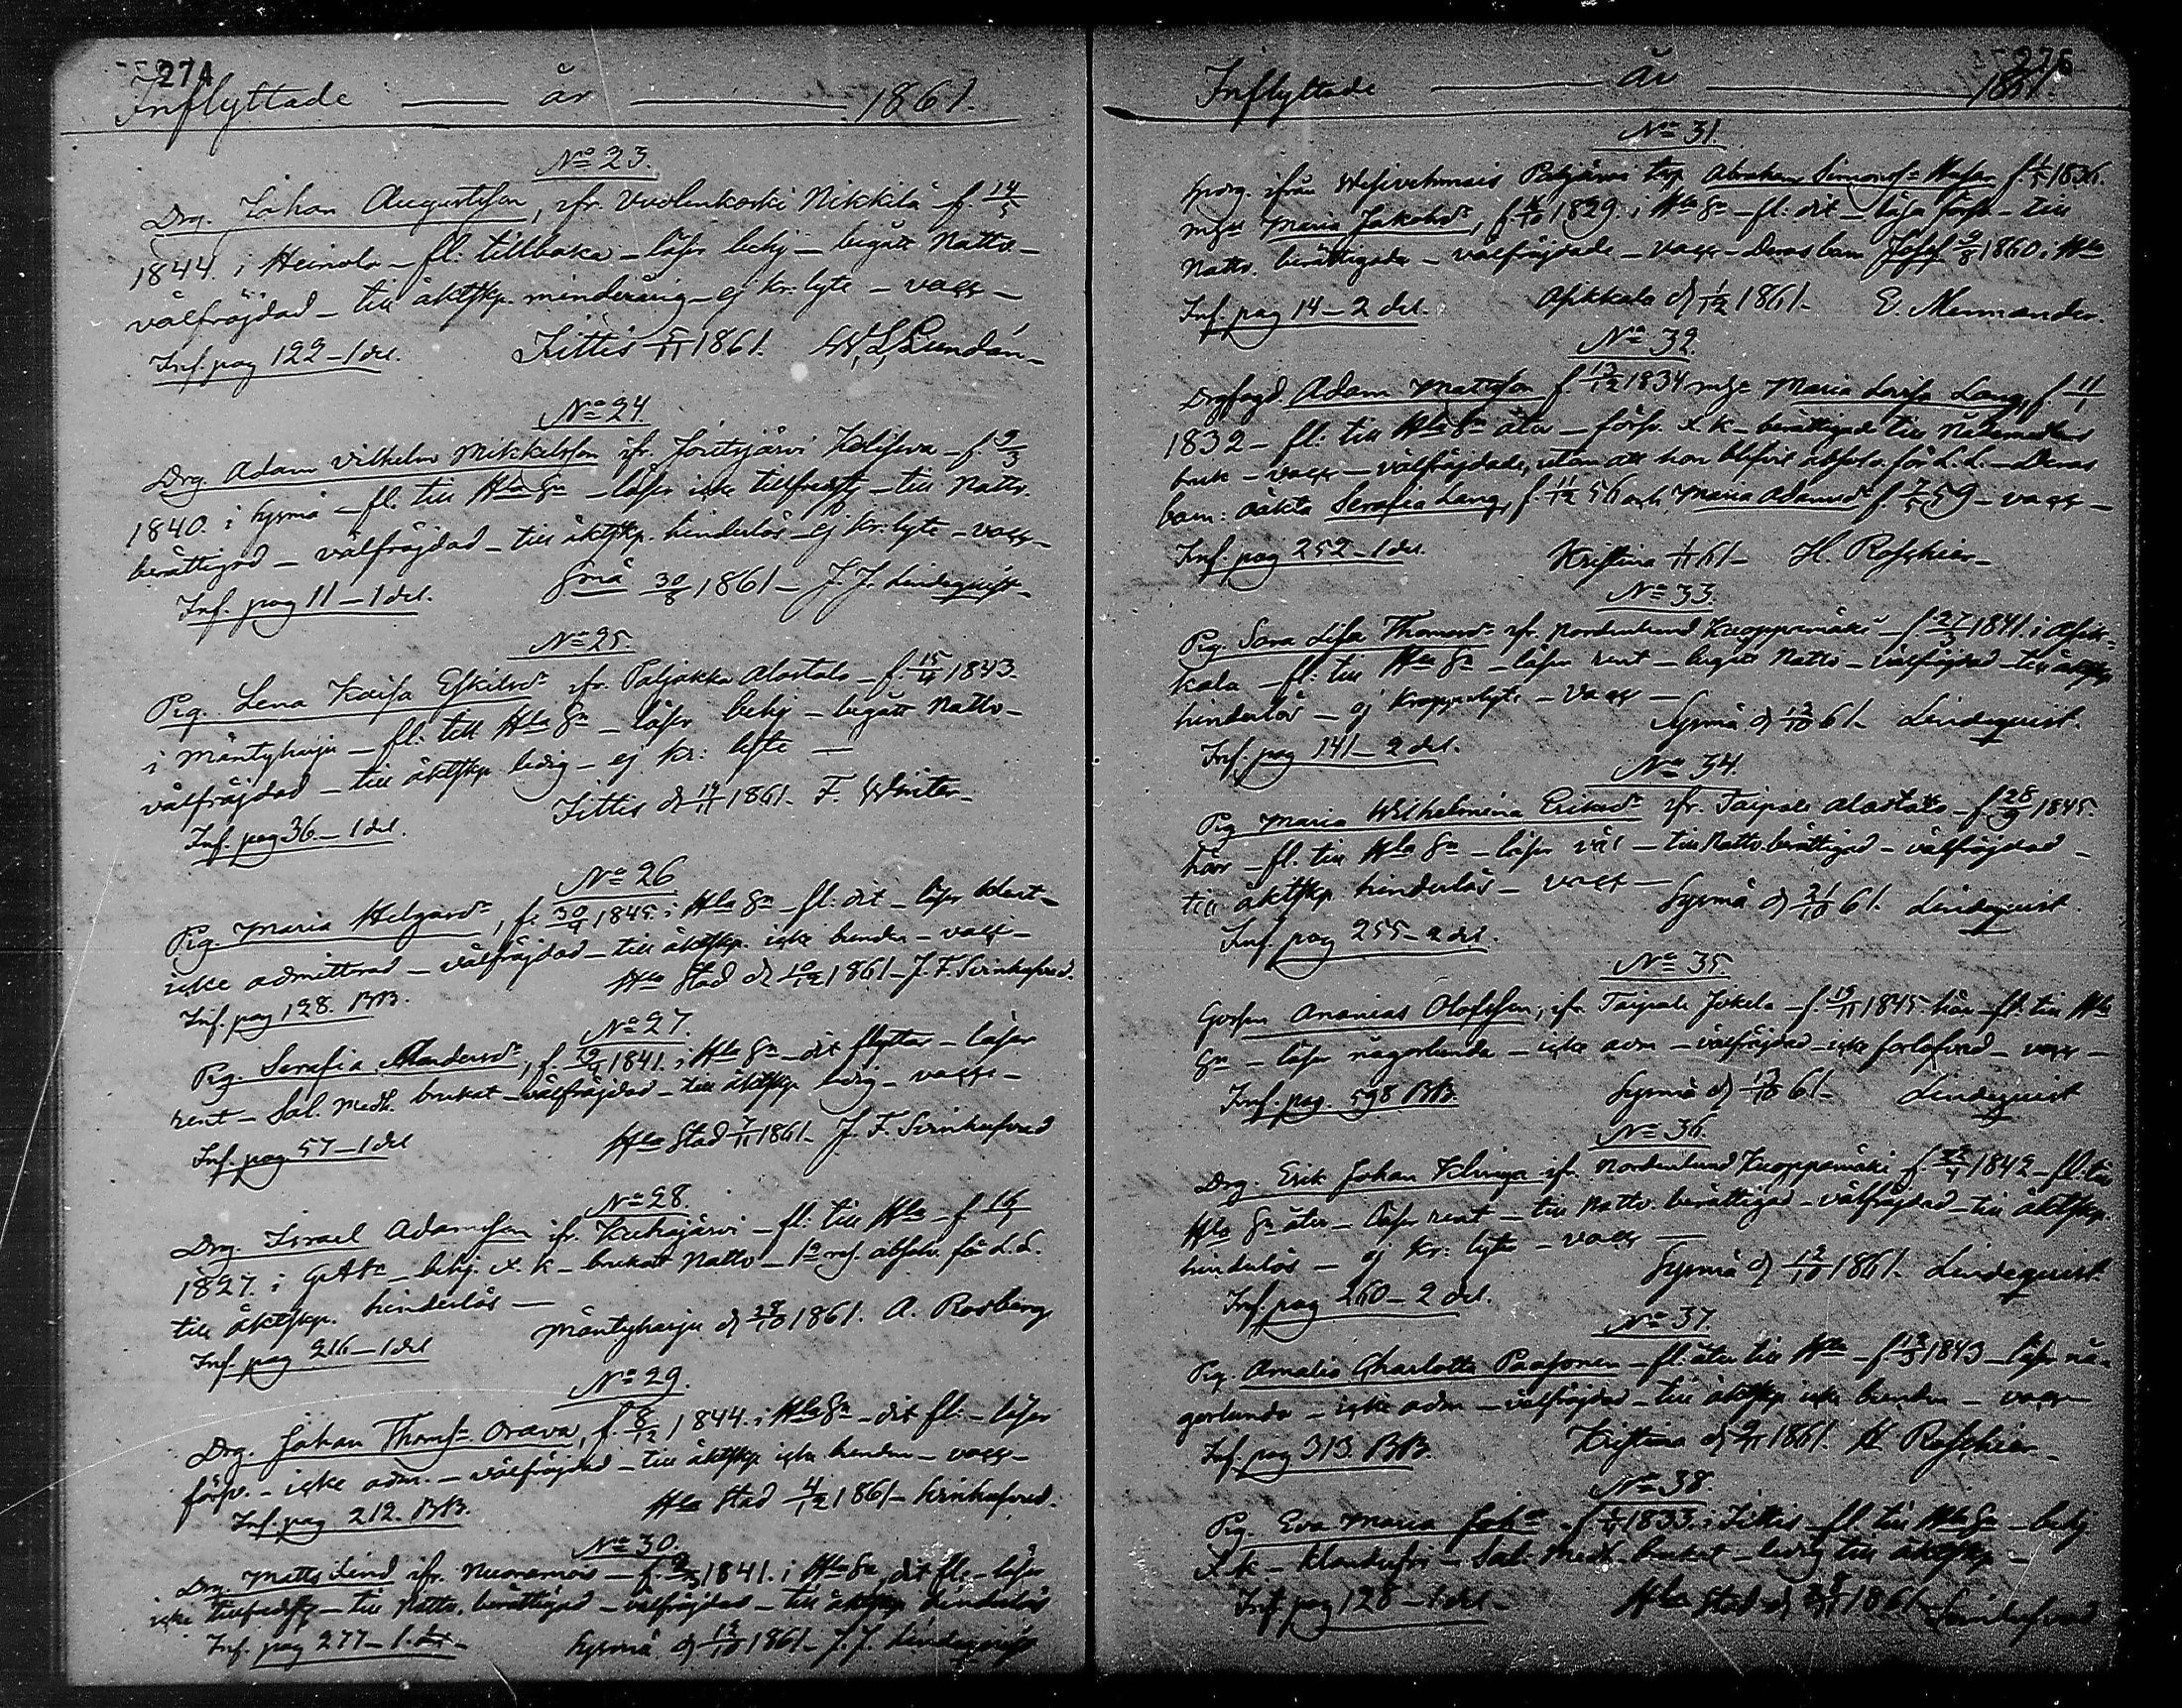 274
Inflyttade — år — 1861.
No 23.
Drg. Johan Augustsson, ifr. Vuolenkoski Nikkilä f. 14/5
1844. i Heinola – fl: tillbaka – läser behj – begått Nattv –
välfräjdad – till äktskp. minderårig – ej kr: lyte – vacc –
Inf. pag 122 – 1 del. Jittis 5/11 1861. Lundán –
No 24.
Drg. Adam Vilhelm Mikkelsson ifr. – f. 9/3
1840. i Sysmä – fl: till Hla Sn – läser icke tillfredst – till Nattv.
berättigad – välfräjdad – till äktskp. hinderlös – ej kr: lyte – vacc –
Inf. pag 11 – 1 del. 30/8 1861 – J. J. Lindequist –
No 25.
Pig. Lena Kaisa Eskilsdr ifr. Paljakka Alastalo – f. 1843.
i Mäntyharju – fl: till Hla Sn – läser behj – begått Nattv –
välfräjdad – till äktskp ledig – ej kr: lyte –
Inf. pag 36. – 1 del. Jittis d 1861. F. Winter –
No 26
Pig. Maria Helgardr, f. 30/9 1845. i Hla Sn – fl: dit – läser
icke admitterad – välfräjdad – till äktskp. icke bunden – vacc –
Inf. pag 128. BB. Hla Stad d 1861 – J. F. Svinhufvud.
No 27.
Pig. Serafia Andersdr, f. 1841. i Hla Sn – dit flyttar – läser
rent – Sal. Medl. brukat – välfräjdad – till äktskp ledig – vacc –
Inf. pag 57 – 1 del Hla Stad 7/11 1861. J. F. Svinhufvud
No 28.
Drg. Israel Adamsson ifr. Kuhajärvi – fl: till Hla – f
1827. i – behj. x. k – brukat Nattv – absolv. för L. S.
till äktskp. hinderlös –
Inf. pag 216 – 1 del Mäntyharju d 1861. A. Rosberg
No 29.
Drg. Johan Thomsn Orava, f. 8/12 1844. i Hla Sn – dit fl: – läser
försv. – icke adm. – välfräjdad – till äktskp icke bunden – vacc –
Inf. pag 212. BB. Hla Stad 4/12 1861 – Svinhufvud.
No 30.
Drg. Matts Lind ifr. Nuoramois – f. 1841. i Hla Sn, dit fl: – läser
icke tillfredst – till Nattv. berättigad – välfräjdad – till äktskp hinderlös
Inf. pag 277 – 1. del – Sysmä d 1861 – J. J. Lindequist
275
Inflyttade — år — 1861.
No 31.
ifrån Abraham Simonsn f. 1836.
Maria Jakobsdr, f. 1829. i Hla Sn – fl: dit – läsa försv – till
Nattv. berättigade – välfräjdade – vacc – Deras barn Josef 1860. i Hla
Inf. pag 14 – 2 del. Asikkala d 1/12 1861 – E. Mennander.
No 32.
Adam Mattsson f 1834 Maria Lovisa Lang, f 11/1
1832 – fl: till Hla Sn åter – försv. x. k – berättigade till Nådemedlens
bruk – vacc – välfräjdade, utan att hon blifvit absolv. för L. L. – Deras
barn: oäkta Serafia Lang, f. 56 och Maria Adamsdr f. 59 – vacc –
Inf. pag 252 – 1 del. Kristina 61 – H. Roschier –
No 33.
Pig. Sara Lisa Thomasdr ifr. Nordenlund Kuoppamäki – f. 27/3 1841. i Asik-
kala – fl: till Hla Sn – läser rent – begått Nattv – välfräjdad – till äktskp
hinderlös – ej kroppslyte – vacc –
Inf. pag 141 – 2 del. Sysmä d 12/10 61 – Lindequist.
No 34.
Pig Maria Wilhelmina Eriksdr ifr. Taipale Alastalo – f. 28/9 1845.
här – fl. till Hla Sn – läser väl – till Nattv. berättigad – välfräjdad –
till äktskp. hinderlös – vacc –
Inf. pag 255 – 2 del. Sysmä d 21/10 61. Lindequist.
No 35.
Gossen Ananias Olofsson, ifr Taipale Jokela – f. 1845. här – fl: till Hla
Sn – läser någorlunda – icke adm – välfräjdad – icke förlofvad – vacc –
Inf. pag. 598 BB. Sysmä d 12/10 61 – Lindequist
No 36.
Drg. Erik Johan ifr. Nordenlund Kuoppamäki f. 1842 – fl: till
Hla Sn åter – läser rent – till Nattv. berättigad – välfräjdad – till äktskp.
hinderlös – ej kr: lyte – vacc –
Inf. pag 260 – 2 del. Sysmä d 12/10 1861. Lindequist
No 37.
Pig. Amalia Charlotta Paasonen – fl: åter till Hla – f. 1843 – läser nå-
gorlunda – icke adm – välfräjdad – till äktskp icke bunden – vacc
Inf. pag 313. BB. Kristina d 1861. H Roschier –
No 38.
Pig. Eva Maria f 1833. i Jittis – fl till Hla Sn – behj
x. k – klanderfri – Sal. Medl. brukat – ledig till äktskp –
Inf. pag 128 – 1 del – Hla Stad d 1861 – Svinhufvud